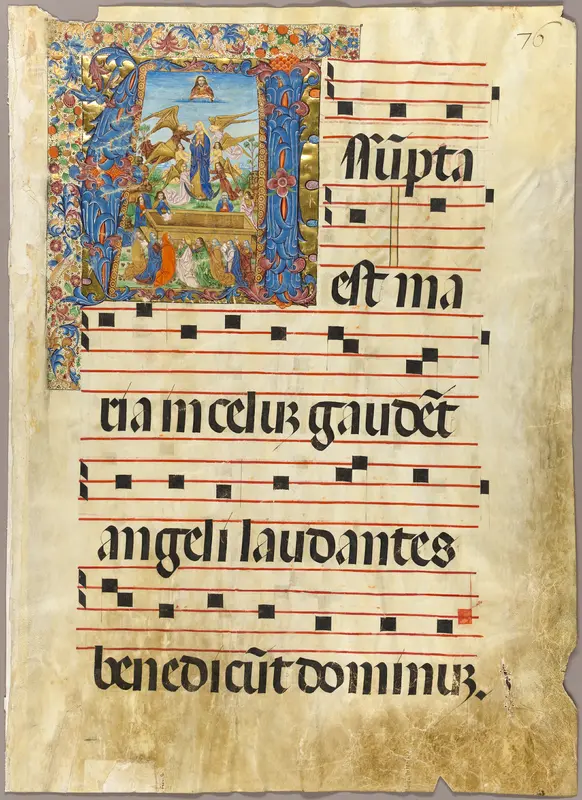 76
Assūpta
est ma
ria in celuꝫ gaudēt
angeli laudantes
benedicūt dominuꝫ.